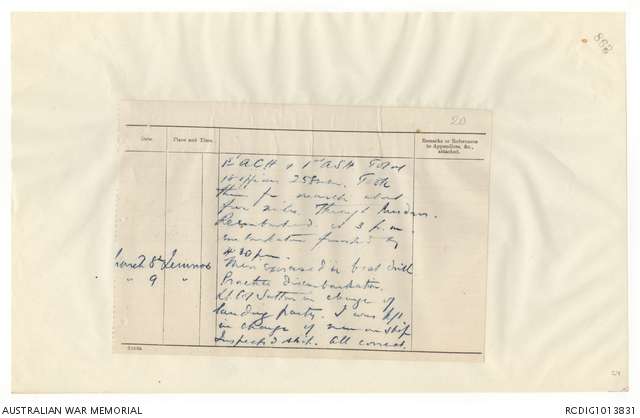 888
20
Date. Place and Time. Remarks or References to Appendices, &c., attached.
1st ACH & 1st ASH Total
10 officers 258 men. Took
them for march about
five miles. Through
Reembarked at 3 p.m.
embarkation finished by
4.30 pm.
8th Lemnos Men exercised in boat drill
" 9 " Practice disembarkation.
Lt Col Sutton in charge of
landing party. I was left
in charge of men on ship
Inspected ship. All correct.
AUSTRALIAN WAR MEMORIAL
RCDIG1013831